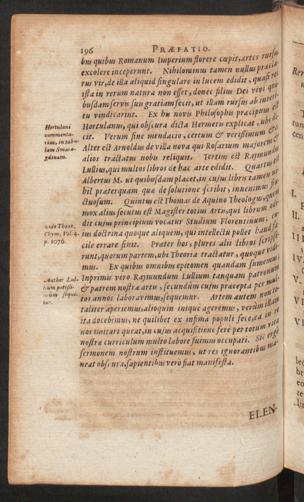 196 PRÆFATIO.
bus quibus Romanum Imperium florere cœpit, artes
excolere inceperunt. Nihilominus tamen nullus
rus vir, de illa aliquid singulare in lucem edidit, quasi res
ista in rerum natura non esset, donec filius Dei vero
busdam servis suis gratiam fecit, ut illam rursus ab
tu vindicarint. Ex his novis Philosophis præcipuus
Hortulanus, qui obscura dicta Hermetis explicat, ubi
ris. Verum sine mendacio, certum & verissimum &c.
Alter est Arnoldus de villa nova qui Rosarium majorem &
alios tractatus nobis reliquit. Tertius est
Lullius, qui multos libros de hac arte edidit. Quartus est
Albertus M. ut quibusdam placet, in cujus libris tamen
hil præterquam quæ de solutione scribit, invenimus
ctuosum. Quintus est Thomas de Aquino Theologus,
mox alius secutus est Magister totius Artis, qui librum
dit cujus principium vocatur Studium Florentinum,
ius doctrina quoque aliquem, qui intellectu pollet haud
cile errare sinit. Præter hos, plures alii libros
runt, quorum partem, ubi Theoria tractatur, quoque
mus. Ex quibus omnibus epitomen quandam sumemus.
Inprimis vero Raimundum Lullium tanquam patronum
& patrem nostræ artis, secundum cujus præcepta per
tos annos laboravimus, sequemur. Artem autem non
taliter aperiemus, alioquin inique ageremus, verum
ita docebimus, ne quilibet ex infima populi fæce, ea in re
nos imitari queat, in cujus acquisitione fere per totum
nostræ curriculum multo labore fuimus occupati. Sic
sermonem nostrum instituemus, ut res ignorantibus
neat obscura, sapientibus vero fiat manifesta.
ELEN-
Hortulani
commenta-
rium, in tabu-
lam Smara-
gdinam.
vide Theat.
Chym. Vol. 4.
p. 1076.
Author Lul-
lium potissi-
mum sequi-
tur.